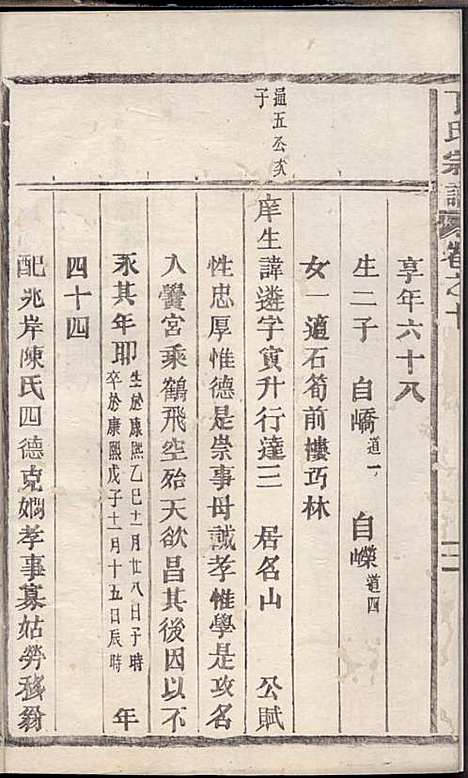 丁氏宗譜 卷之十
享年六十八
生二子 自嶠道一 自嶸道四
女一適石筍前樓巧林
通五公次子
庠生諱遴字寅升行達三 居名山 公賦
性忠厚惟德是崇事母誠孝惟學是攻名
入黌宮乘鶴飛空殆天欲昌其後因以不
永其年耶 生於康熙乙巳十一月廿八日子時
卒於康熙戊子十一月十五日辰時 年
四十四
配兆岸陳氏四德克嫻孝事寡姑勞務